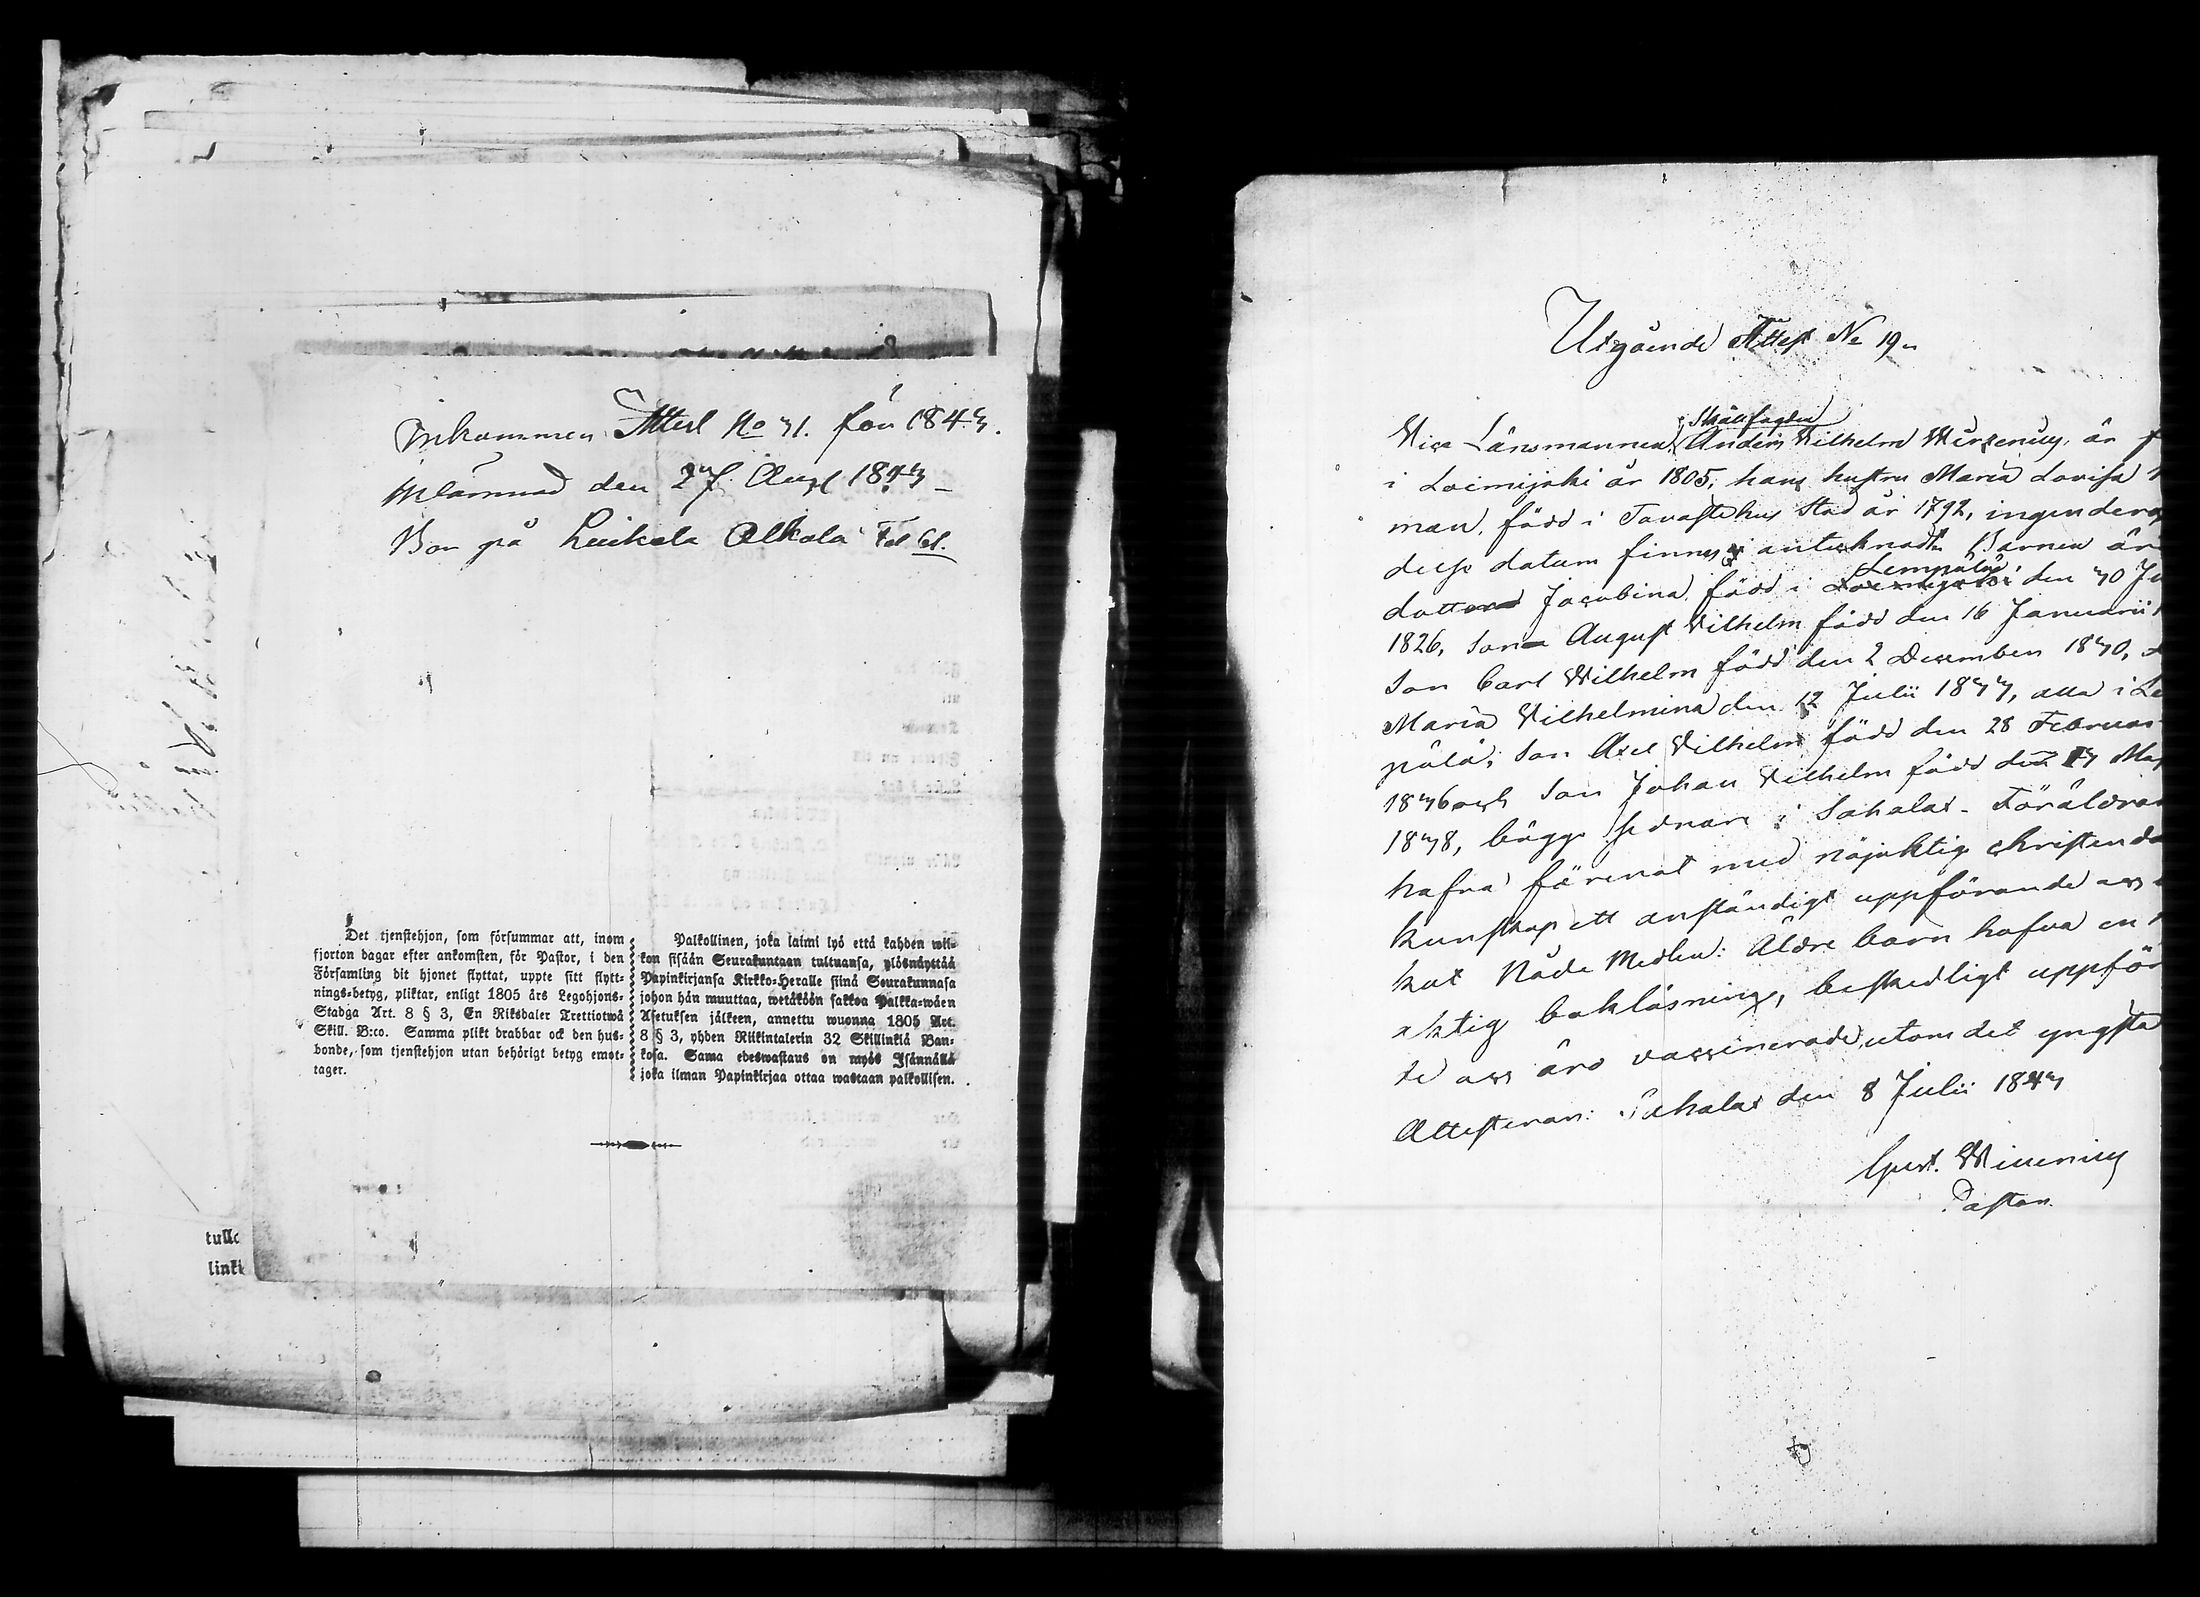 Inkommen Attest No 31. för 1843.
inlämnad den 27. Aug 1843
Bor på Luikala Alkola Fol 61.
Det tjenstehjon, som försummar att, inom
fjorton dagar efter ankomsten, för Pastor, i den
Församling dit hjonet flyttat, uppte sitt flytt-
nings-betyg, pliktar, enligt 1805 års Legohjons-
Stadga Art. 8 § 3, En Riksdaler Trettiotwå
Skill. B:co. Samma plikt drabbar ock den hus-
bonde, som tjenstehjon utan behörigt betyg emot-
tager.
Palkollinen, joka laimi lyö että kahden wii-
kon sisään Seurakuntaan tultuansa, ylösnäyttää
Papinkirjansa Kirkko-Herralle siinä Seurakunnasa
johon hän muuttaa, wetäköön sakkoa Palkka-wäen
Asetuksen jälkeen, annettu wuonna 1805 Art.
8 § 3, yhden Riikintalerin 32 Skillinkiä Ban-
kosa. Sama edeswastaus on myös Isännällä
joka ilman Papinkirjaa ottaa wastaan palkollisen.
tulle
linki
Utgående Attest No 19.
Skallfogden
Vice Länsmannen, Anders Vilhelm Wirzenius, är f
i Loimijoki år 1805, hans hustru Maria Lovisa
man, född i Tavastehus Stad år 1792, ingendera
dess datum finnes antecknadt. Barnen är
Lempälä
dotter Jacobina född i Loimijoki den 30 Ju
1826, Son August Vilhelm född den 16 Januarii
Son Carl Wilhelm född den 2 December 1830,
Maria Vilhelmina den 12 Julii 1833, alla i Le
pälä; Son Axel Vilhelm född den 28 Februar
1836 och Son Johan Vilhelm född den 17 Maj
1838, bägge sednare i Sahalax. Föräldrar
hafva förenat med nöjaktig christendo
kunskap ett anständigt uppförande och
kat Nåde Medlen: Äldre barn hafva en
aktig bokläsning, beskedligt uppför
de och äro vaccinerade, utom det yngsta
Attesterar: Sahalax den 8 Julii 1843
Gust. Winning
Pastor.